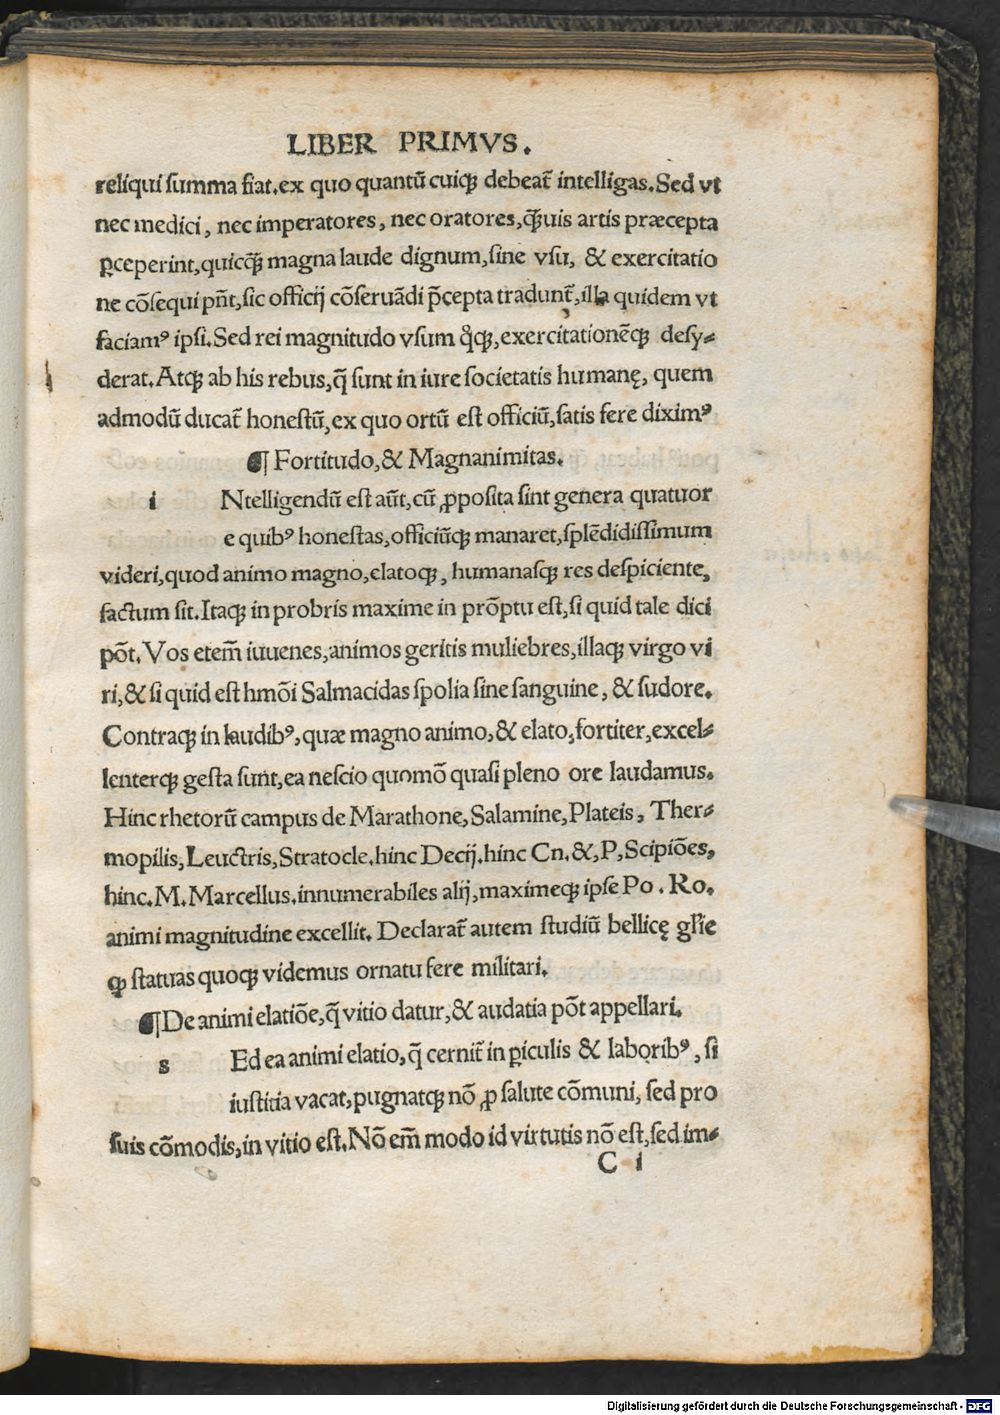 LIBER PRIMVS.
reliqui summa fiat.ex quo quantū cuiqꝫ debeat̄ intelligas.Sed vt
nec medici, nec imperatores, nec oratores,qꝫ̄uis artis præcepta
ꝑceperint,quicqꝫ̄ magna laude dignum,sine vsu, & exercitatio
ne cōsequi pn̄t,sic officij cōseruādi p̄cepta tradunt̄,illa quidem vt
faciamꝰ ipsi.Sed rei magnitudo vsum q̊qꝫ,exercitationēqꝫ desy⸗
derat.Atqꝫ ab his rebus,q̄ sunt in iure societatis humanę, quem
admodū ducat̄ honestū,ex quo ortū est officiū,satis fere diximꝰ
¶ Fortitudo,& Magnanimitas.
i Ntelligendū est aūt,cū ꝓposita sint genera quatuor
e quibꝰ honestas,officiūqꝫ manaret,splēdidissimum
videri,quod animo magno,elatoqꝫ, humanasqꝫ res despiciente,
factum sit.Itaqꝫ in probris maxime in prōptu est,si quid tale dici
pōt.Vos etem̄ iuuenes,animos geritis muliebres,illaqꝫ virgo vi
ri,& si quid est hmōi Salmacidas spolia sine sanguine, & sudore.
Contraqꝫ in laudibꝰ,quæ magno animo,& elato,fortiter,excel⸗
lenterqꝫ gesta sunt,ea nescio quomō quasi pleno ore laudamus.
Hinc rhetorū campus de Marathone,Salamine,Plateis, Ther⸗
mopilis,Leuctris,Stratocle.hinc Decij.hinc Cn.&,P,Scipiões,
hinc.M.Marcellus.innumerabiles alij,maximeqꝫ ipse Po . Ro.
animi magnitudine excellit. Declarat̄ autem studiū bellicę gl̄ie
ꝙ statuas quoqꝫ videmus ornatu fere militari.
¶De animi elatiōe,q̄ vitio datur,& audatia pōt appellari.
s Ed ea animi elatio,q̄ cernit̄ in ꝑiculis & laboribꝰ, si
iustitia vacat,pugnatqꝫ nō ꝓ salute cōmuni, sed pro
suis cōmodis,in vitio est.Nō em̄ modo id virtutis nō est,sed im⸗
C i
Digitalisierung gefördert durch die Deutsche Forschungsgemeinschaft - DFG